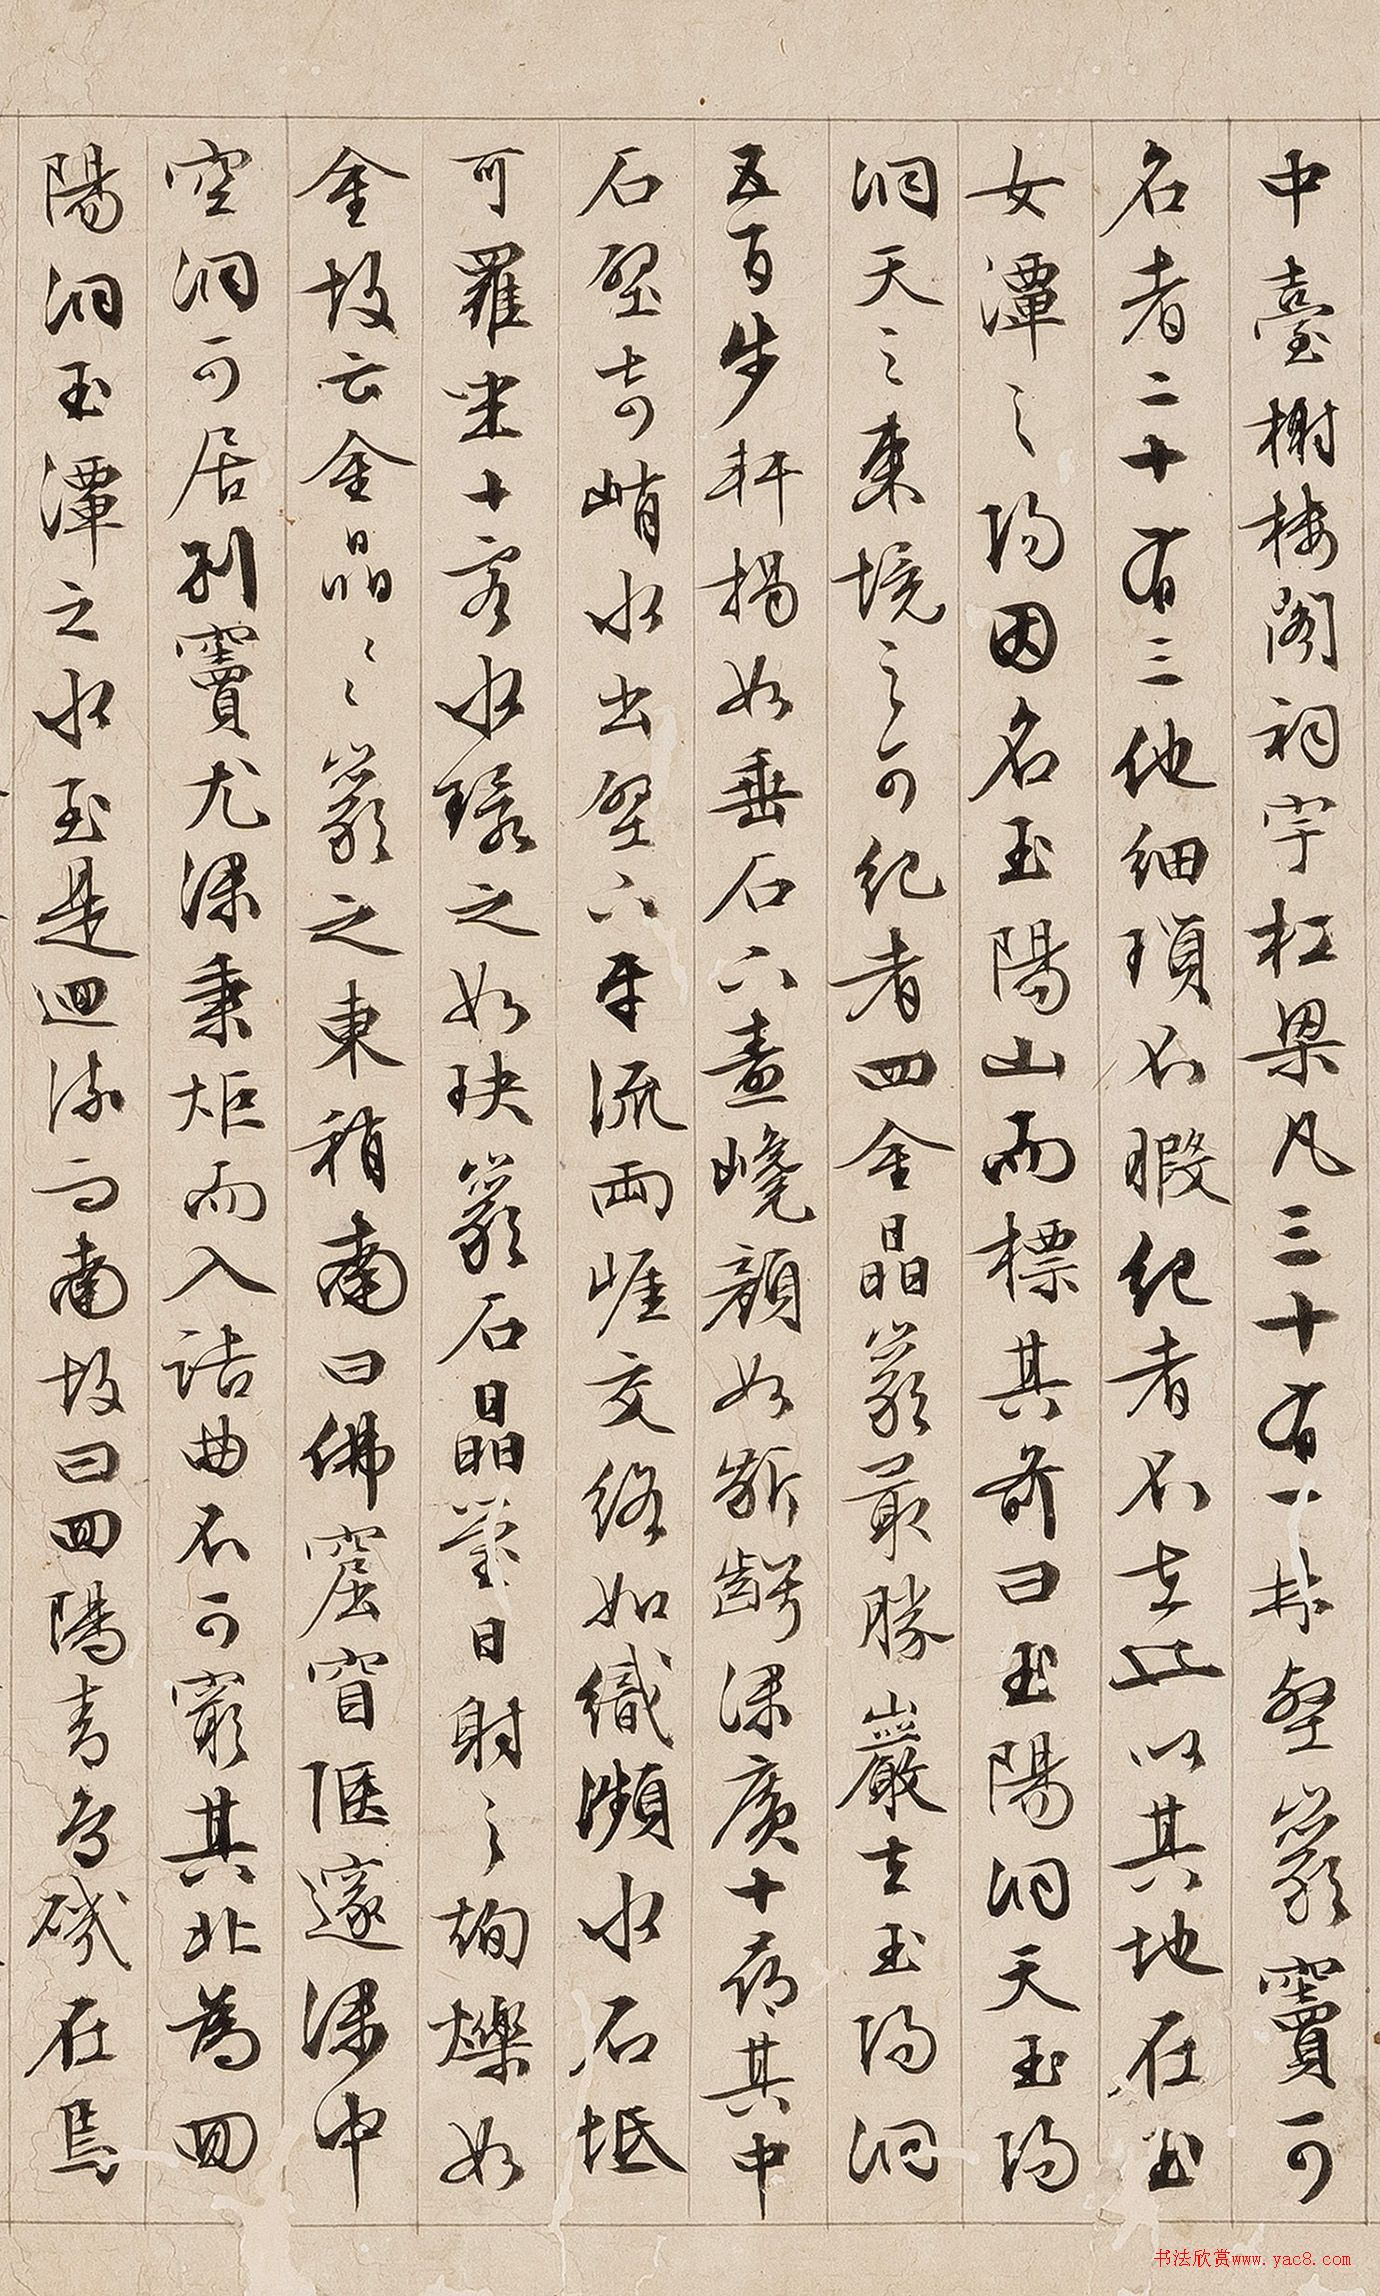 中臺榭樓閣祠宇杠梁凡三十有一林壑巖竇可
名者二十有三他細瑣不暇紀者不在此以其地在玉
女潭之陽因名玉陽山而標其前曰玉陽洞天玉陽
洞天之東境之可紀者四金晶巖最勝巖去玉陽洞
五百步軒揭如垂石下盡巉顏如齗齶深廣十尋其中
石壁奇峭水出壁下平流兩崖交絡如織瀕水石坻
可羅坐十客水環之如玦巖石晶瑩日射之絢爍如
金故云金晶晶巖之東稍南曰佛窟窅匽邃深中
空洞可居別竇尤深秉炬而入詰曲不可窮其北為回
陽洞玉潭之水至是迴流而南故曰回陽青鳥磯在焉
书法欣赏www.yac8.com